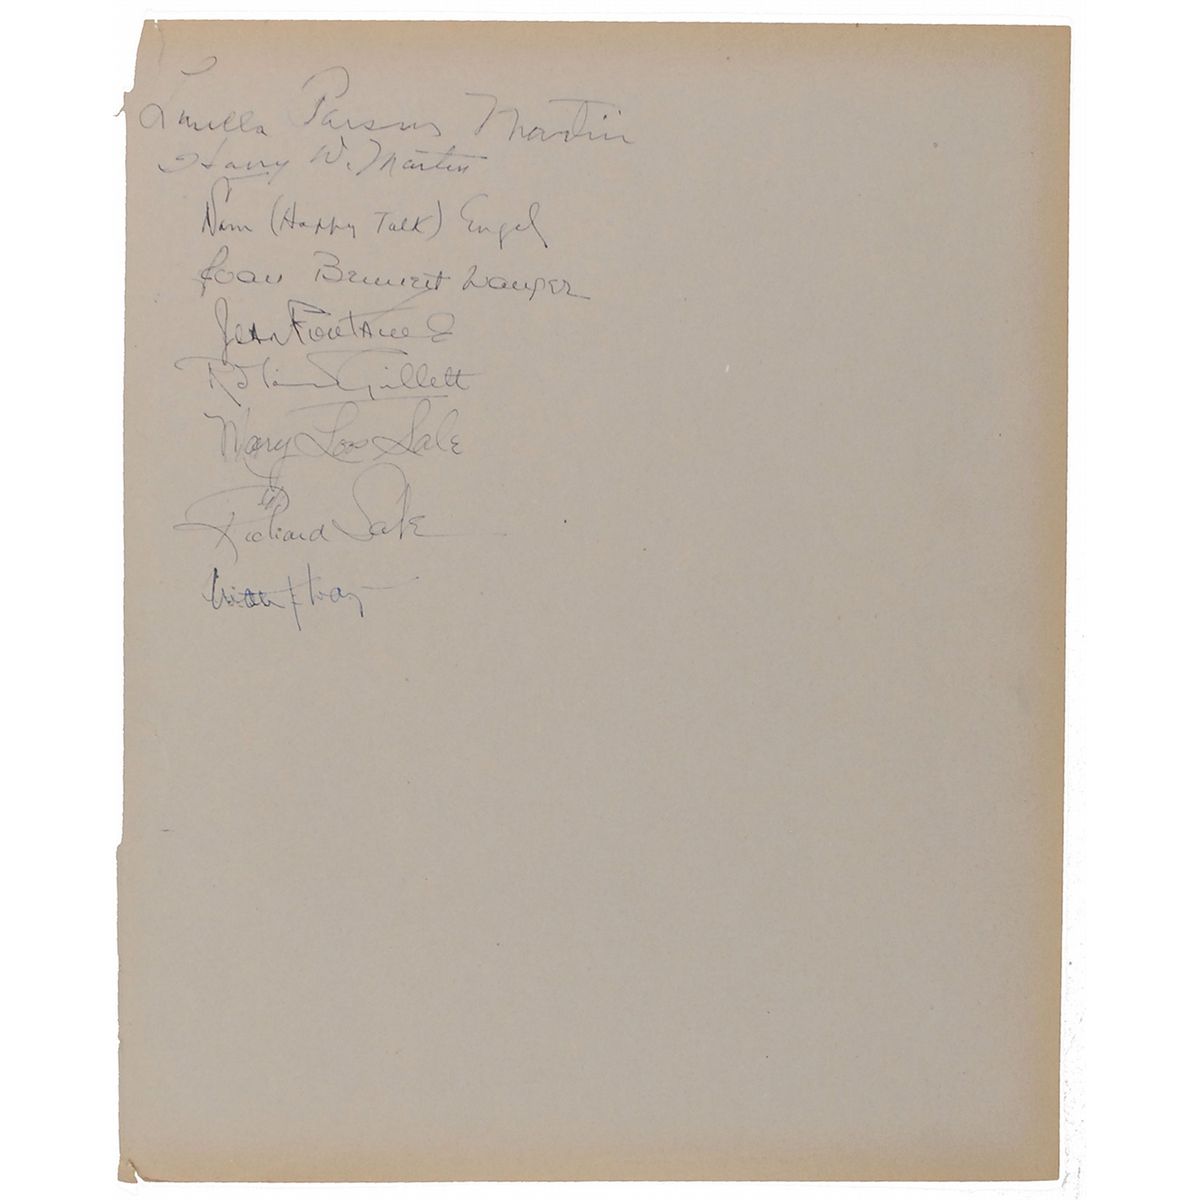 Louella Parsons Martin
Harry W. Martin
Sam (Happy Talk) Engel
Joan Bennett Wanger
Joan Fontaine
Gillett
Mary Loos Sale
Richard Sale